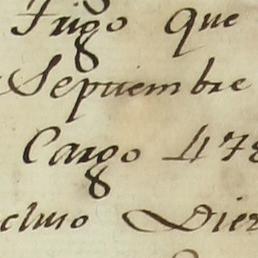 Trigo que
Septiembre
Cargo 478
cluso Diez